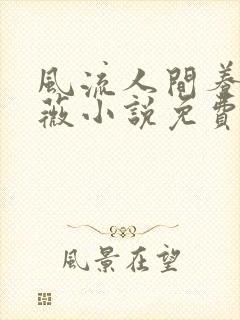 風流人間養
薇小說免費
風景在望